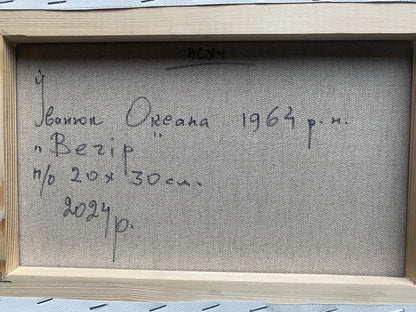 НСХУ
Іванюк Оксана 1964 р.н.
"Вечір"
п/о 20х30см.
2024р.